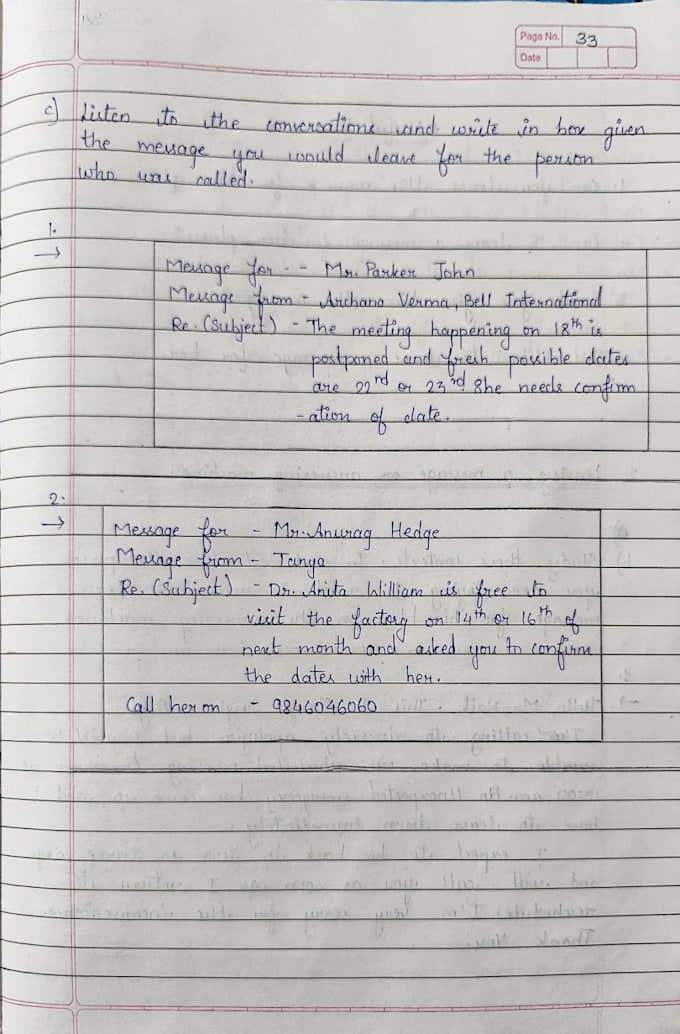 Page No. 33
Date
c) Listen to the conversations and write in box given
the message you would leave for the person
who was called.
1.
→ Message for - - Mr. Parker John
Message from - Archana Verma, Bell International
Re. (Subject) - The meeting happening on 18th is
postponed and fresh possible dates
are 22nd or 23rd. She needs confirm
-ation of date.
2.
→ Message for - Mr. Anurag Hedge
Message from - Tanya
Re. (Subject) - Dr. Anita William is free to
visit the factory on 14th or 16th of
next month and asked you to confirm
the dates with her.
Call her on - 9846046060